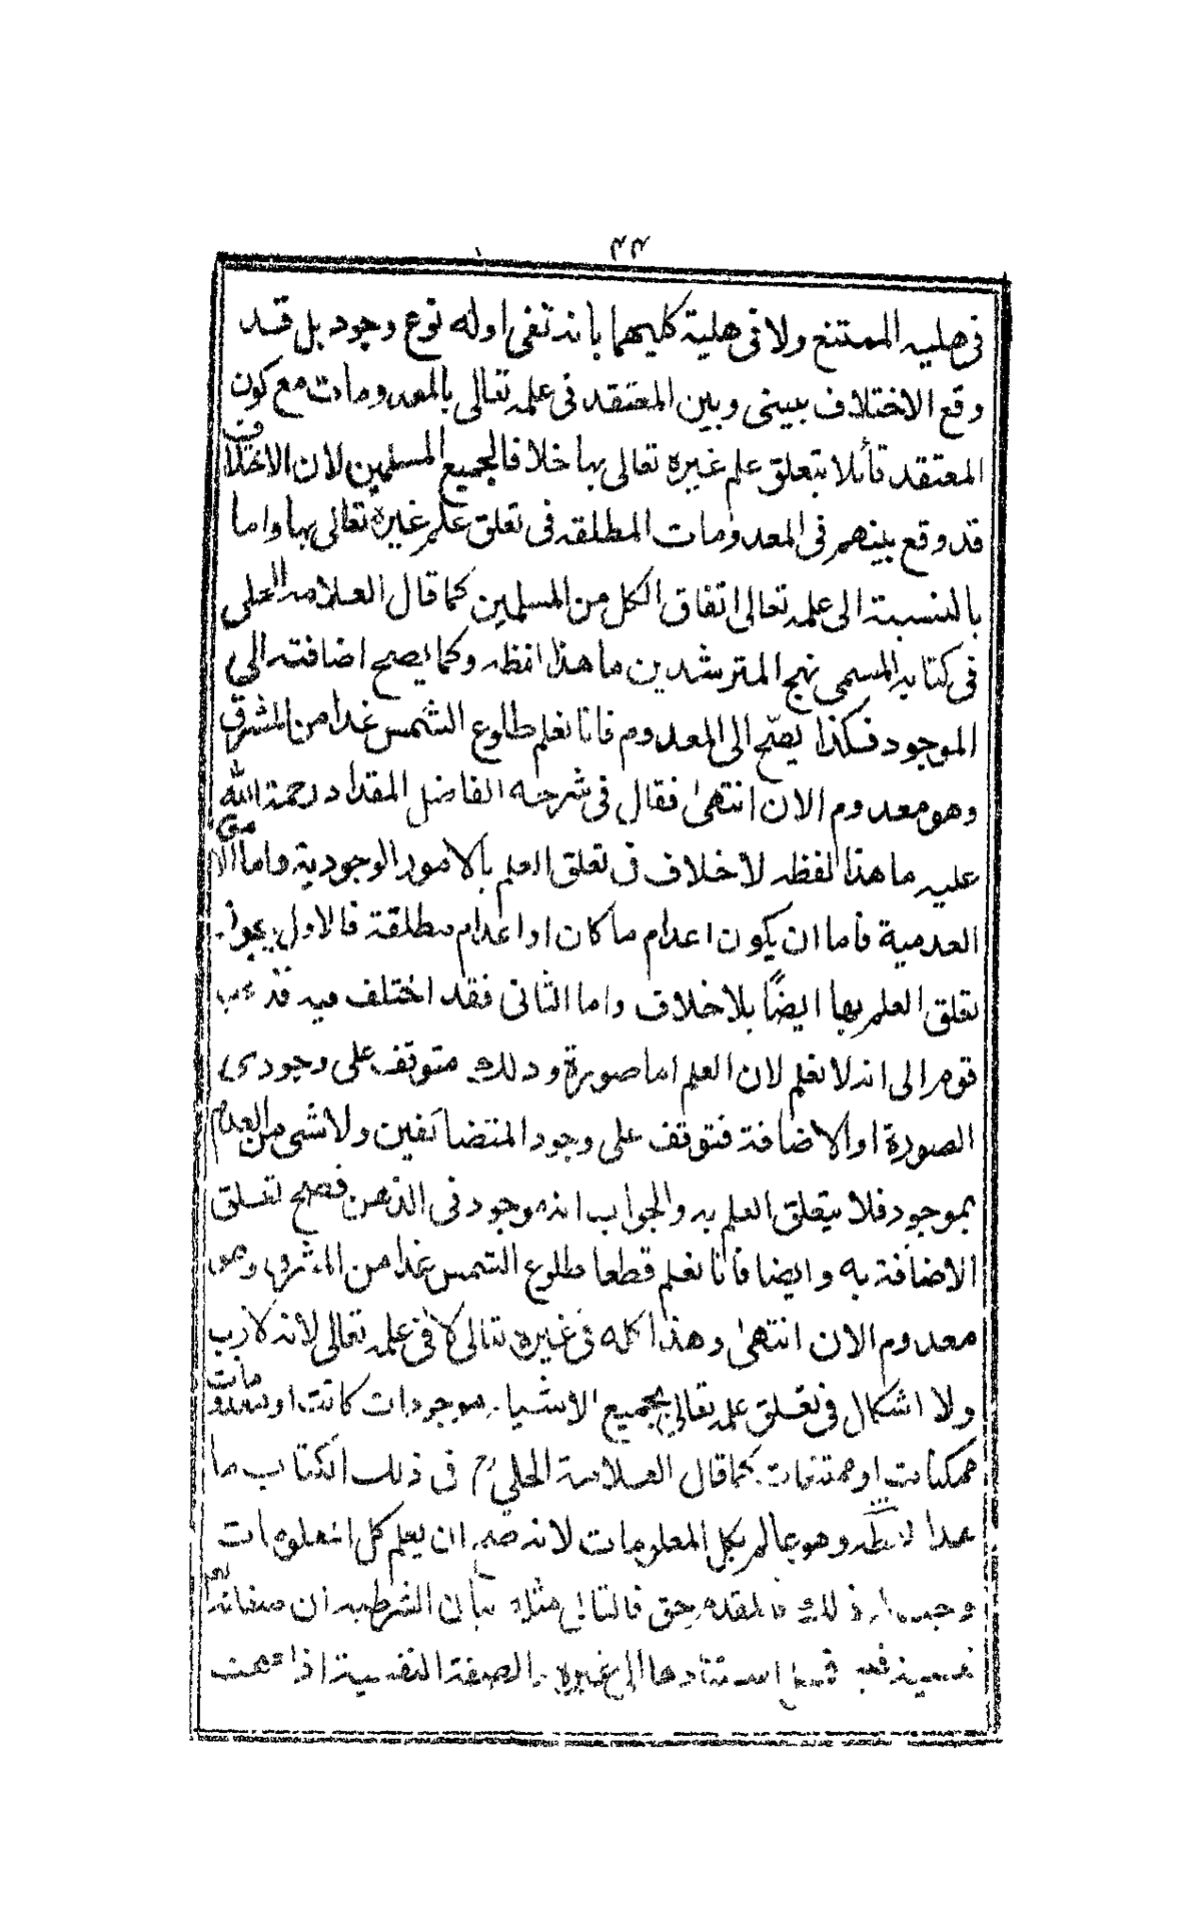 ٤٣
فى هلية الممتنع ولا فى هلية كليهما بانه تفى اوله نوع وجود بل قد
وقع الاختلاف بينى وبين المعتقد فى علمه تعالى بالمعدومات مع كون
المعتقد قائلا بتعلق علم غيره تعالى بها خلافا لجميع المسلمين لان الاختلاف
قد وقع بينهم فى المعدومات المطلقه فى تعلق علم غيره تعالى بها واما
بالنسبة الى علمه تعالى اتفاق الكل من المسلمين كما قال العلامه الحلى
فى كتابه المسمى نهج المترشدين ما هذا لفظه وكما يصح اضافته الى
الموجود فكذا يصّح الى المعدوم فانا نعلم طلوع الشمس غدا من المشرق
وهو معدوم الان انتهى فقال فى شرحه الفاضل المقداد رحمة الله
عليه ما هذا لفظه لا خلاف فى تعلق العلم بالامور الوجودية واما الامور
العدمية فاما ان يكون اعدام ما كان او اعدام مطلقة فالاول يجوز
تعلق العلم بها ايضًا بلا خلاف واما الثانى فقد اختلف فيه فذهب
قوم الى انه لا نعلم لان العلم اما صورة وذلك متوقف على وجود ذى
الصورة او الاضافة فتوقف على وجود المتضائفين ولا شى من العدم
بموجود فلا يتعلق العلم به والجواب انه موجود فى الذهن فصح تعلق
الاضافة به وايضا فانا نعلم قطعا طلوع الشمس غدا من المشرق وهو
معدوم الان انتهى وهذا كله فى غيره تعالى لا فى علمه تعالى لانه لا ريب
ولا اشكال فى تعلق علمه تعالى بجميع الاشياء موجودات كانت او معدومات
ممكنات او ممتنعات كما قال العلامة الحلي رح فى ذلك الكتاب ما
هذا لفظه وهو عالم بكل المعلومات لانه صح ان يعلم كل المعلومات
وجب له ذلك فالمقدم حق فالتالى مثله بيان الشرطيه ان صفاته تعم
نفسية استنادها الى غيره والصفة النفسية اذا صحت